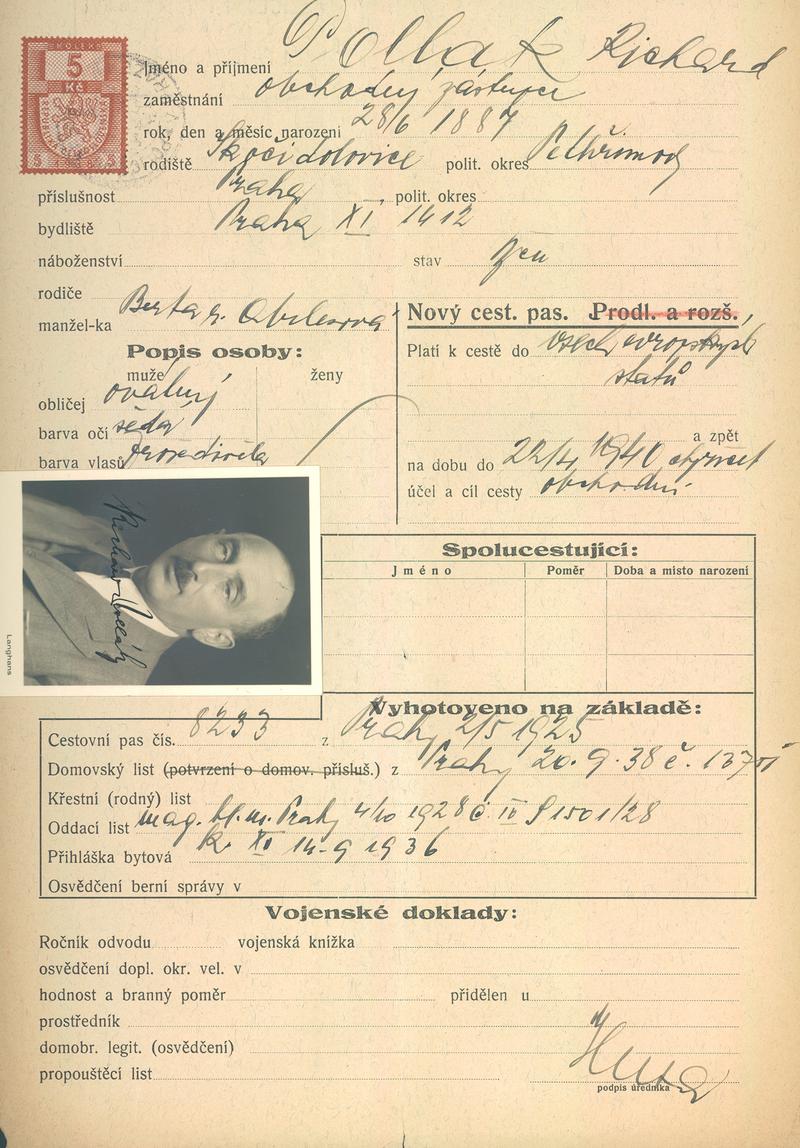 KOLEK
5
Kč
Jméno a příjmení Pollak Richard
zaměstnání obchodný zástupce
rok, den a měsíc narození 28/6 1887
rodiště polit. okres Pelhřimov
příslušnost Praha, polit. okres
bydliště Praha XI 1412
náboženství stav žen
rodiče
manžel-ka Berta r.
Popis osoby:
muže ženy
obličej oválný
barva očí šedá
barva vlasů prošedivělé
Nový cest. pas. Prodl. a rozš.,
Platí k cestě do všech evropských
států
a zpět
na dobu do 22/4 1940
účel a cíl cesty obchodní
Richard Pollák
Langhans
Spolucestující:
Jméno Poměr Doba a místo narození
Vyhotoveno na základě:
Cestovní pas čís. 8233 z Prahy 2/5 1925
Domovský list (potvrzení o domov. přísluš.) z Prahy 20.9.38 č.
Křestní (rodný) list
Oddací list mag. hl. m. Prahy 4/10 1928 č. IV 1501/28
Přihláška bytová XI 14-9 1936
Osvědčení berní správy v
Vojenské doklady:
Ročník odvodu vojenská knížka
osvědčení dopl. okr. vel. v
hodnost a branný poměr přidělen u
prostředník
domobr. legit. (osvědčení)
propouštěcí list
podpis úředníka